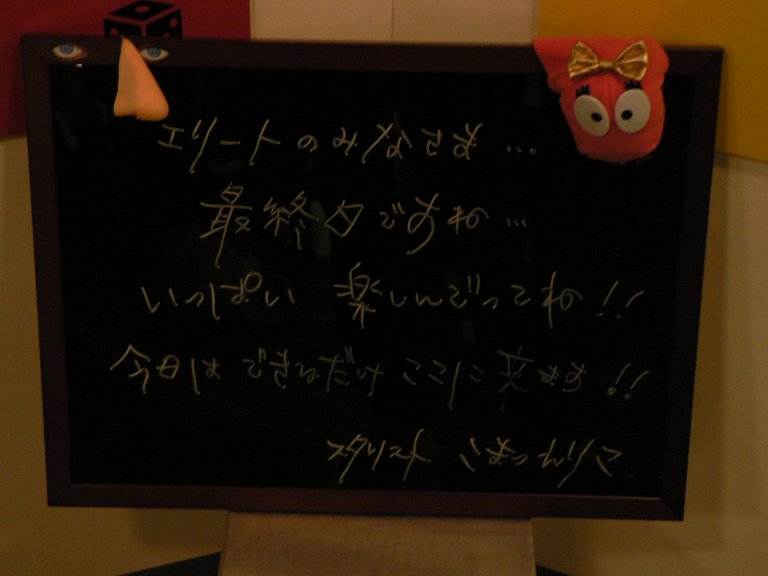 エリートのみなさま…
最終夕ですね…
いっぱい 楽しんでってね!!
今日はできるだけ ここに 来ます!!
スタリスト こまつえりこ